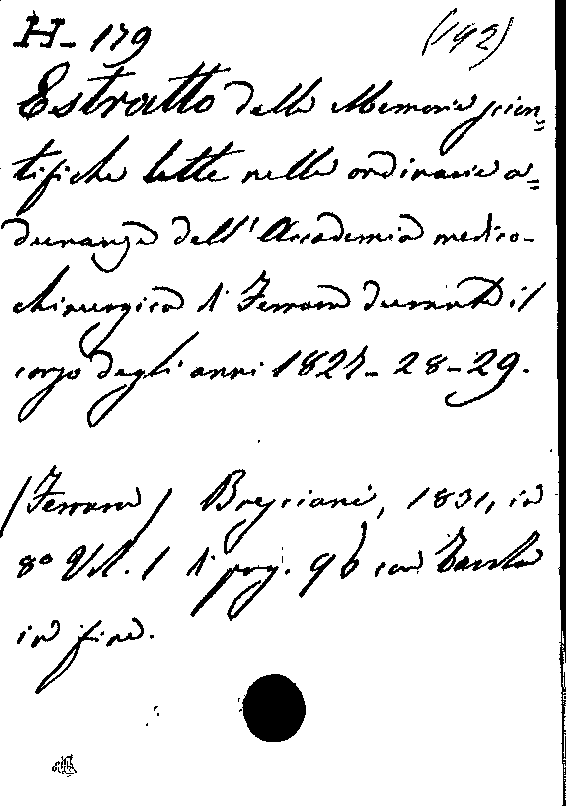 H- 179 (192)
Estratto delle Memorie scien=
tifiche lette nelle ordinarie a=
dunanze dell'Accademia medico-
chirurgica di Ferrara durante il
corso degli anni 1827- 28-29.
(Ferrara) Bresciani, 1831, in
8° Vol. 1 di pag. 96 con Tavola
in fine.